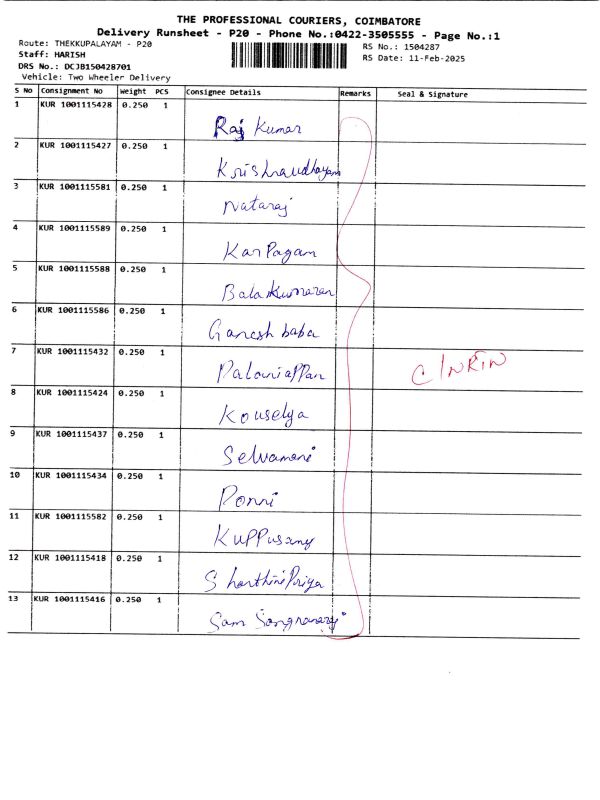 THE PROFESSIONAL COURIERS, COIMBATORE
Delivery Runsheet - P20 - Phone No.:0422-3505555 - Page No.:1
Route: THEKKUPALAYAM - P20
RS No.: 1504287
Staff: HARISH
RS Date: 11-Feb-2025
DRS No.: DCJB150428701
Vehicle: Two Wheeler Delivery
S No Consignment No Weight PCS Consignee Details Remarks Seal & Signature
1 KUR 1001115428 0.250 1 Raj Kumar
2 KUR 1001115427 0.250 1
3 KUR 1001115581 0.250 1 Nataraj
4 KUR 1001115589 0.250 1 KarPagam
5 KUR 1001115588 0.250 1 Bala Kumaran
6 KUR 1001115586 0.250 1 Ganesh baba
7 KUR 1001115432 0.250 1 Palaniappan
8 KUR 1001115424 0.250 1 Kouselya
9 KUR 1001115437 0.250 1 Selvamani
10 KUR 1001115434 0.250 1 Ponni
11 KUR 1001115582 0.250 1 KuPPusamy
12 KUR 1001115418 0.250 1 ShanthiniPriya
13 KUR 1001115416 0.250 1 Sam